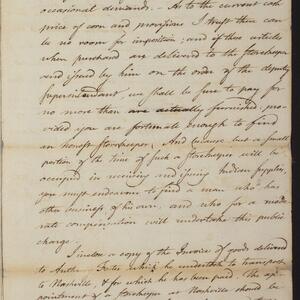 occasional demands. - As to the current cash
price of corn and provisions I trust there can
be no room for imposition; and if these articles
when purchased are delivered to the storekeeper
and issued by him on the order of the deputy
Superintendant we shall be sure to pay for
no more than are actually furnished, pro-
vided you are fortunate enough to find
an honest storekeeper. And because but a small
portion of the time of such a storekeeper will be
occupied in receiving and issuing Indian supplies,
you must endeavour to find a man who has
other business of his own, and who for a mode-
rate compensation will undertake this public
charge.
I inclose a copy of the Invoice of goods delivered
to Anthy. Foster which he undertook to transport
to Nashville, & for which he has been paid. The ap-
pointment of a storekeeper at Nashville should be